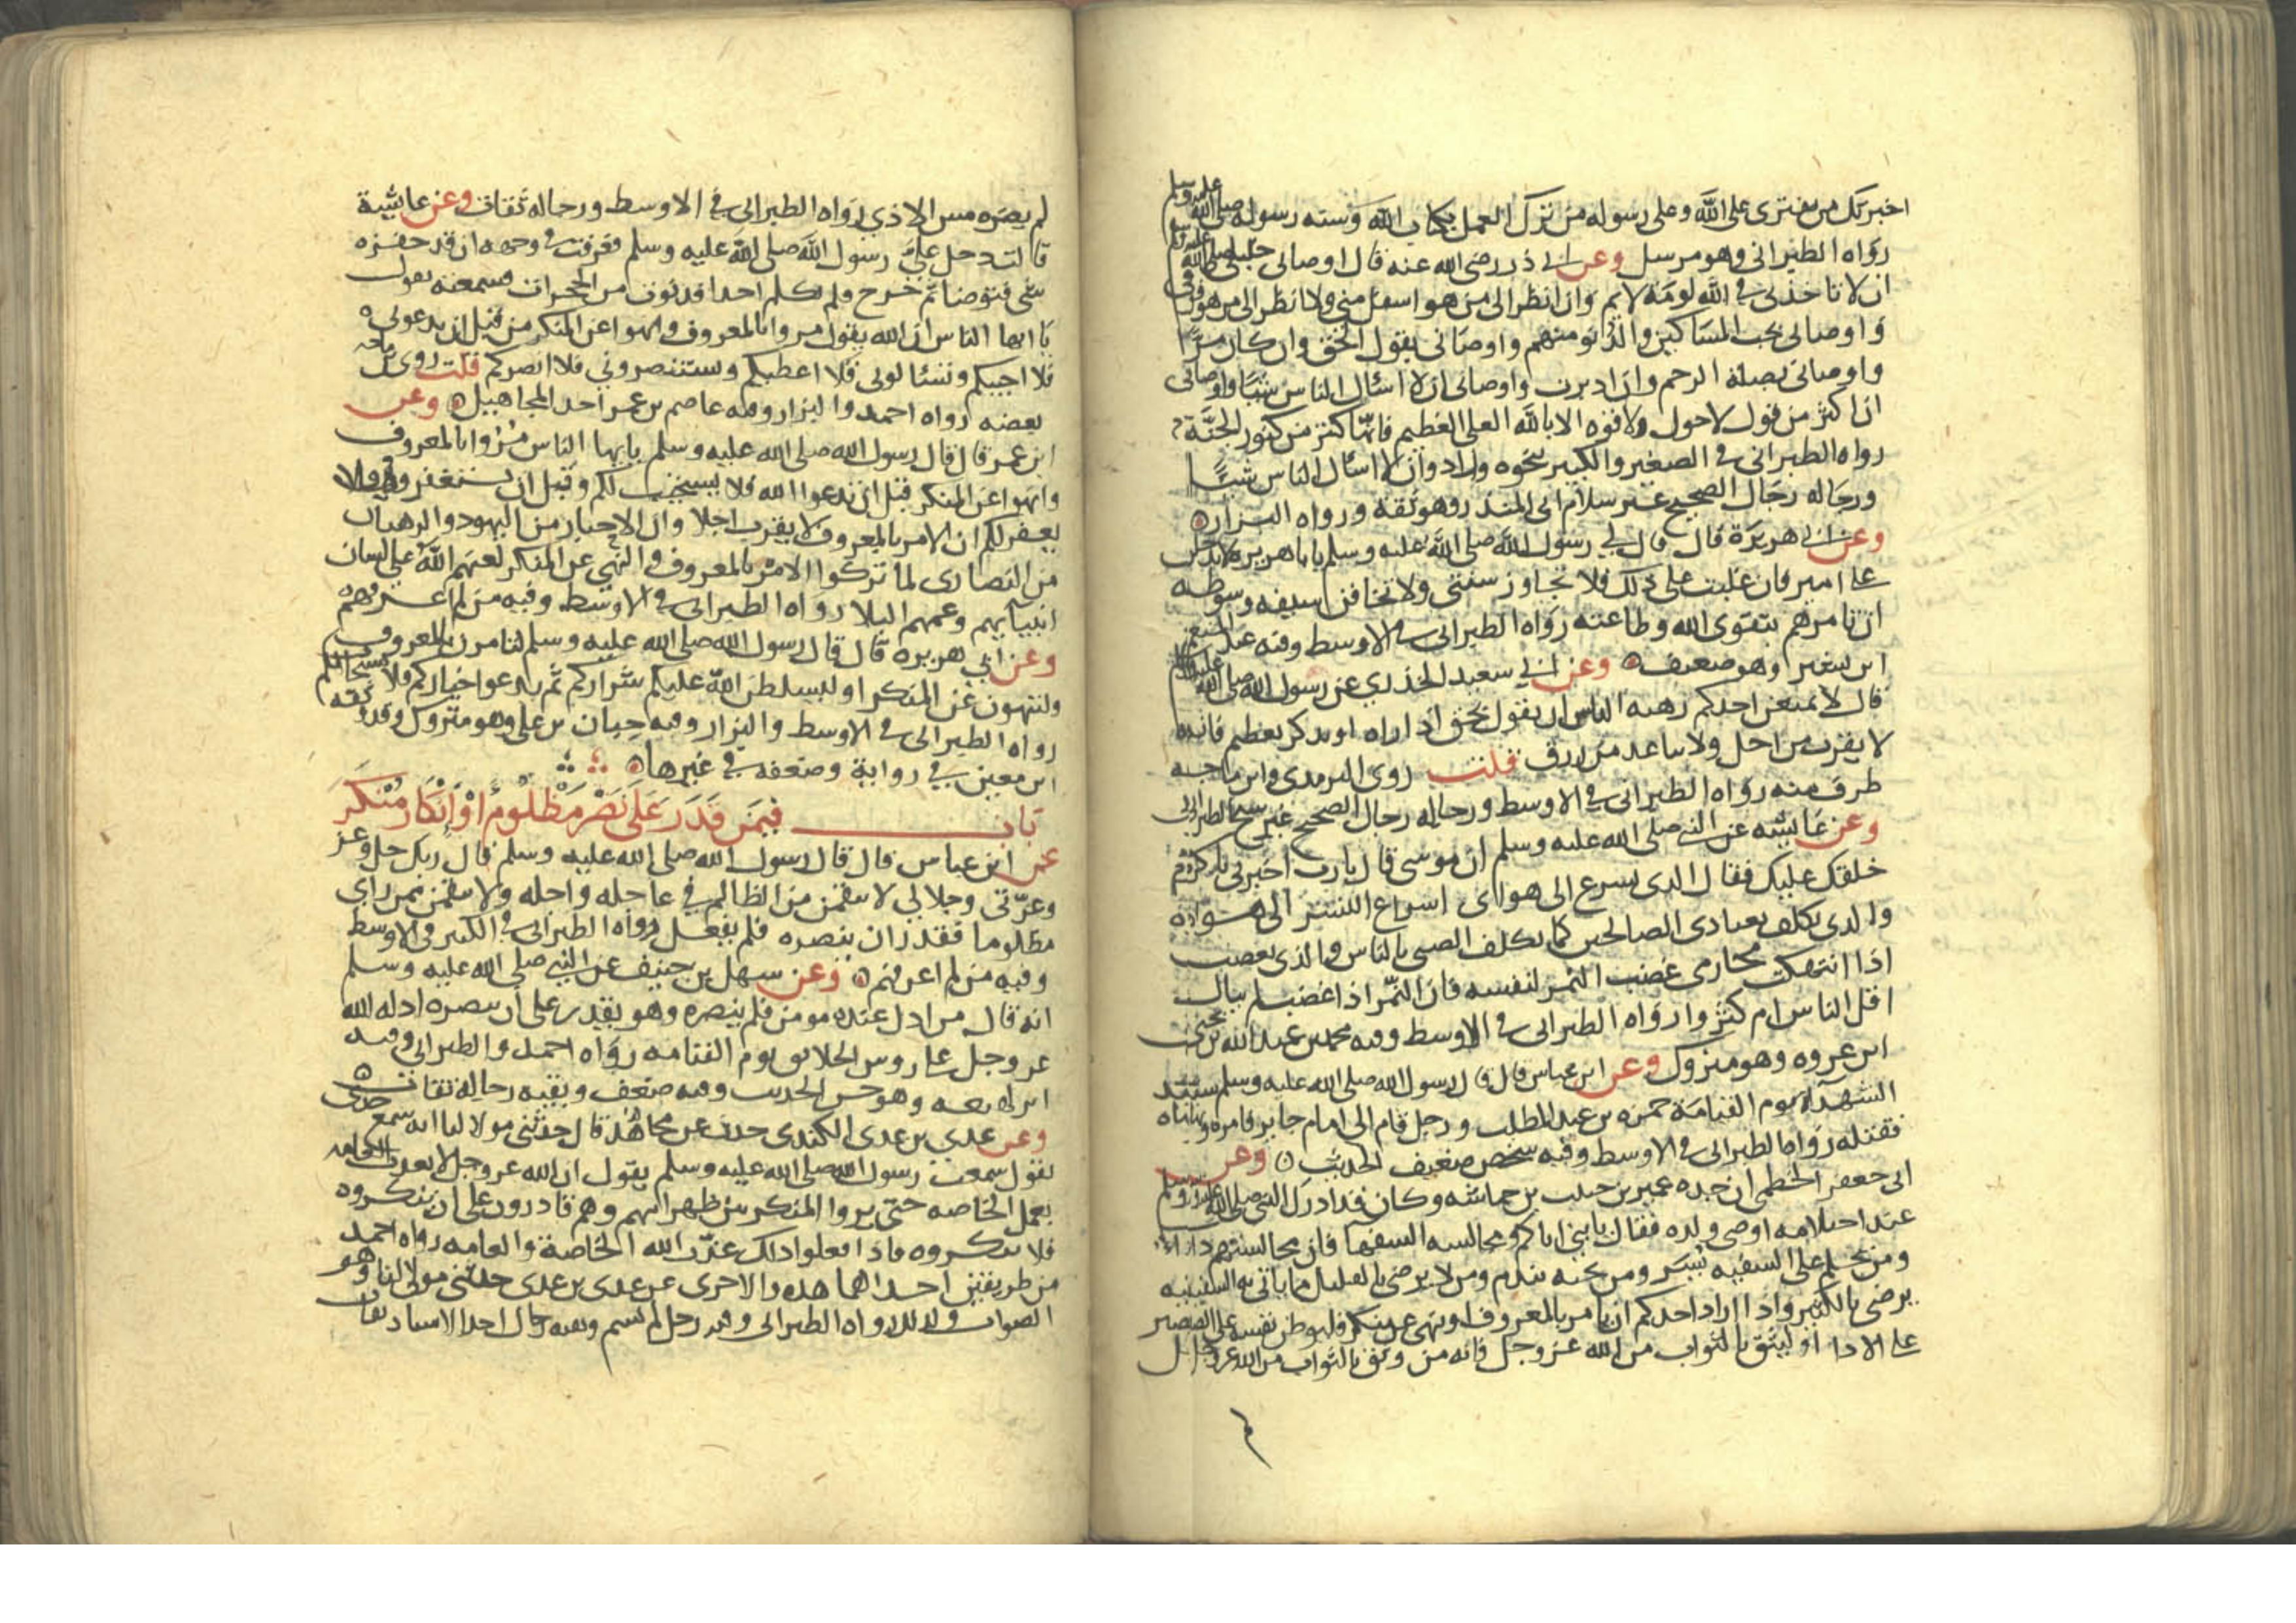 اخبر بك من يفترى على الله وعلى رسوله من ترك العمل بكتاب الله وسنة رسوله صلى الله عليه وسلم
رواه الطبراني وهو مرسل وعن ابي ذر رضى الله عنه قال اوصاني خليلي صلى الله عليه وسلم
ان لا تاخذني في الله لومة لايم وان انظر الى من هو اسفل مني ولا انظر الى من هو فوقي
و اوصاني بحب المساكين والدنو منهم واوصاني بقول الحق وان كان مرًّا
واوصاني بصلة الرحم وان ادبرت واوصاني ان لا اسئال الناس شيئًا واوصاني
ان اكثر من قول لا حول ولا قوه الا بالله العلى العظيم فانّها كنز من كنوز الجنّة
رواه الطبراني في الصغير والكبير بنحوه وزاد وان لا اسال الناس شيئًا
ورجاله رجال الصحيح غير سلام ابى المنذر وهو ثقة ورواه البزار
وعن ابي هريرة قال قال لي رسول الله صلى الله عليه وسلم يابا هريره لا تدخل
على امير فان غلبت على ذلك فلا تجاوز سنتي ولا تخافن سيفه وسوطه
ان تامرهم بتقوى الله وطاعته رواه الطبراني في الاوسط وفيه عبد المنعم
ابن بشير وهو ضعيف وعن ابي سعيد الخدري عن رسول الله صلى الله عليه وسلم
قال لا يمنعن احدكم رهبة الناس ان يقول بحق اذا راه او يذكر بعظيم فانه
لا يقرب من اجل ولا يباعد من رزق قلت روى الترمذى وابن ماجه
طرف منه رواه الطبراني في الاوسط ورجاله رجال الصحيح غير شيخ الطبراني
وعن عايشه عن النبي صلى الله عليه وسلم ان موسى قال يارب اخبرني باكرم
خلقك عليك فقال الذى يسرع الى هواى اسراع النسر الى هواه
والذى يكلف بعبادى الصالحين كما يكلف الصبى بالناس والذى يغضب
اذا انتهكت محارمى غضب النمر لنفسه فان النّمر اذا غضب لم يبال
اقل الناس ام كثروا رواه الطبراني في الاوسط وفيه محمد بن عبد الله بن يحيى
ابن عروه وهو متروك وعن ابن عباس قال قال رسول الله صلى الله عليه وسلم سيد
الشهدآء يوم القيامة حمزه بن عبد المطلب ورجل قام الى امام جاير فامره ونهاه
فقتله رواه الطبراني في الاوسط وفيه شخص ضعيف الحديث وعن
ابى جعفر الخطمى ان جده عمير بن حبيب بن حماشه وكان قد ادرك النبي صلى الله عليه وسلم
عند احتلامه اوصى ولده فقال يا بني اياكم ومجالسه السفها فان مجالستهم داء
ومن يحلم على السفيه يسر ومن يجبه يندم ومن لا يرضى بالقليل مما ياتي به السفيه
يرضى بالكثير واذا اراد احدكم ان يامر بالمعروف او ينهى عن منكر فليوطن نفسه على الصبر
على الاذا او ليثق بالثواب من الله عز وجل فانه من وثق بالثواب من الله عز وجل
لم يضره مس الاذي رواه الطبراني في الاوسط ورجاله ثقات وعن عايشة
قالت دخل عليّ رسول الله صلى الله عليه وسلم فعرفت في وجهه ان قد حفزه
شي فتوضا ثم خرج فلم يكلم احدا فدنوت من الحجرات فسمعته يقول
يا ايها الناس ان الله يقول مروا بالمعروف وانهوا عن المنكر من قبل ان تدعوني
فلا اجيبكم وتسئالوني فلا اعطيكم وتستنصروني فلا انصركم قلت روى ابن ماجه
بعضه رواه احمد والبزار وفيه عاصم بن عمر احد المجاهيل وعن
ابن عمر قال قال رسول الله صلى الله عليه وسلم يايها الناس مُرُوا بالمعروف
وانهوا عن المنكر قبل ان تدعوا الله فلا يستجيب لكم وقبل ان تستغفروه ولا
يغفر لكم ان الامر بالمعروف لا يقرب اجلا وان الاحبار من اليهود والرهبان
من النصارى لما تركوا الامر بالمعروف والنهي عن المنكر لعنهم الله على لسان
انبيايهم وعمهم البلا رواه الطبراني في الاوسط وفيه من لم اعرفهم
وعن ابي هريره قال قال رسول الله صلى الله عليه وسلم لتامرن بالمعروف
ولتنهون عن المنكر او ليسلطن الله عليكم شراركم ثم يدعوا خياركم ولا يستجاب لكم
رواه الطبراني في الاوسط والبزار وفيه حبان بن على وهو متروك وقد وثقه
ابن معين في رواية وضعفه في غيرها
باب فيمَن قَدَرَ عَلَى نَصْرِ مَظْلُومٍ اوْ اِنْكَارِ مُنْكَرٍ
عن ابن عباس قال قال رسول الله صلى الله عليه وسلم قال ربك جل وعز
وعزّتي وجلالي لا نتقمن من الظالم في عاجله واجله ولا نتقمن ممن راى
مظلوما فقدر ان ينصره فلم يفعل رواه الطبراني في الكبير والاوسط
وفيه من لم اعرفهم وعن سهل بن حنيف عن النبي صلى الله عليه وسلم
انه قال من اذل عنده مومن فلم ينصره وهو يقدر على ان ينصره اذله الله
عز وجل على روس الخلايق يوم القيامه رواه احمد والطبراني وفيه
ابن لهيعه وهو حسن الحديث وفيه ضعف وبقيه رجاله ثقات
وعن عدي بن عدى الكندى حدث عن مجاهد قال حدثني مولا لنا انه سمع جدي
يقول سمعت رسول الله صلى الله عليه وسلم يقول ان الله عز وجل لا يعذب العامه
بعمل الخاصه حتى يروا المنكر بين ظهرانيهم وهم قادرون على ان ينكروه
فلا ينكروه فاذا فعلوا ذلك عذّب الله الخاصة والعامه رواه احمد
من طريقين احداهما هذه والاخرى عن عدى بن عدى حدثني مولى لنا وهو
الصواب وكذلك رواه الطبراني وفيه رجل لم يسم وبقيه رجال احد الاسنادين ثقات